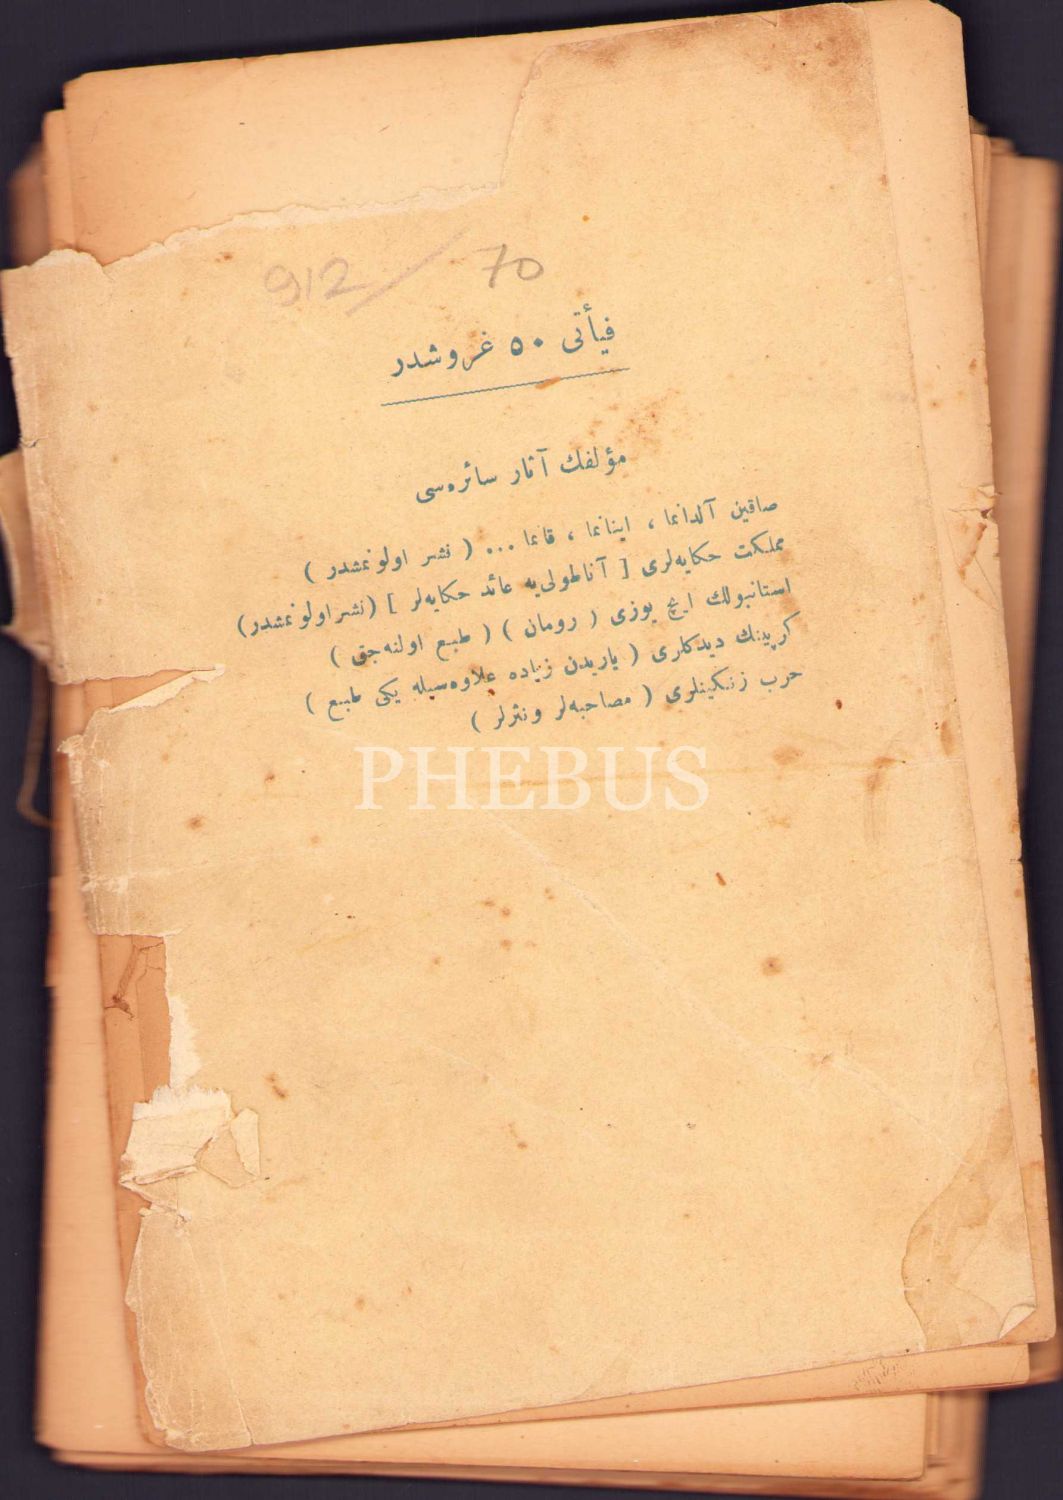 912/ 70
فيأتی ٥٠ غروشدر
مؤلفك آثار سائره‌سی
صاقين آلدانما ، اينانما ، قانما ... ( نشر اولونمشدر )
مملكت حكايه‌لری [ آناطولی‌يه عائد حكايه‌لر ] (نشر اولونمشدر)
استانبولك ايچ يوزی ( رومان ) ( طبع اولنه‌جق )
كرپينك ديدكلری ( ياريدن زياده علاوه‌سيله يكی طبع )
حرب زنكينلری ( مصاحبه‌لر و نثرلر )
PHEBUS